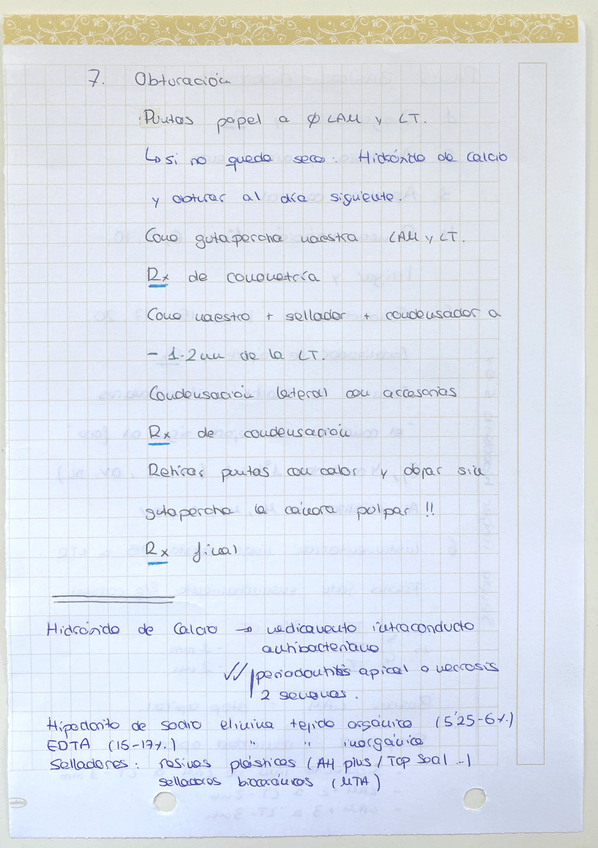 7. Obturación
Puntas papel a Ø LAM y LT.
↳ si no queda seco: Hidróxido de calcio
y obturar al día siguiente.
Cono gutapercha maestra LAM y LT.
Rx de conometría
Cono maestro + sellador + condensador a
- 1-2mm de la LT.
Condensación lateral con accesorias
Rx de condensación
Retirar puntas con calor y dejar sin
gutapercha la cámara pulpar !!
Rx final
Hidróxido de Calcio → medicamento intraconducto
antibacteriano
✓✓ periodontitis apical o necrosis
2 semanas.
Hipoclorito de sodio elimina tejido orgánico (5'25-6%)
EDTA (15-17%) " " inorgánico
Selladores: resinas plásticas (AH plus / Top Seal ...)
selladores biocerámicos (MTA)